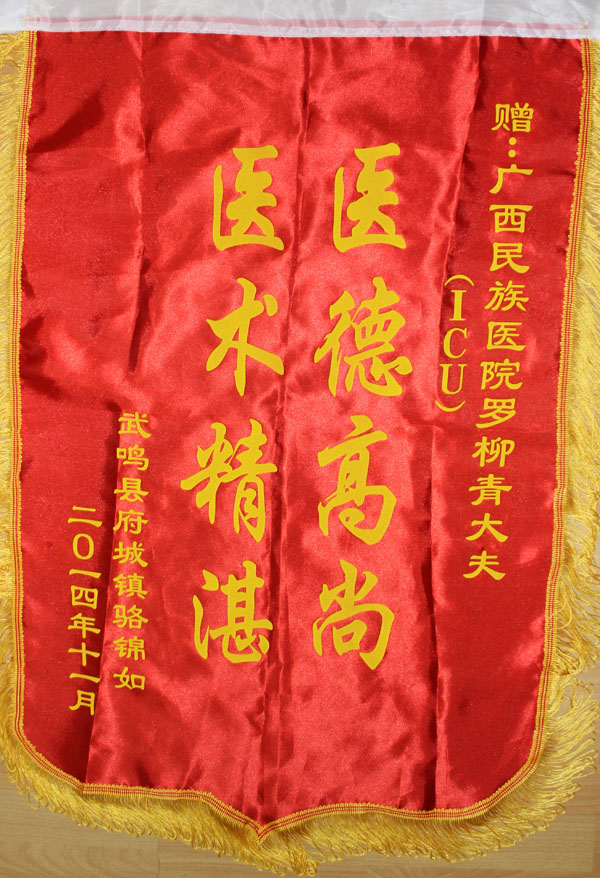 赠：广西民族医院罗柳青大夫
（ICU）
医德高尚
医术精湛
武鸣县府城镇骆锦如
二〇一四年十一月